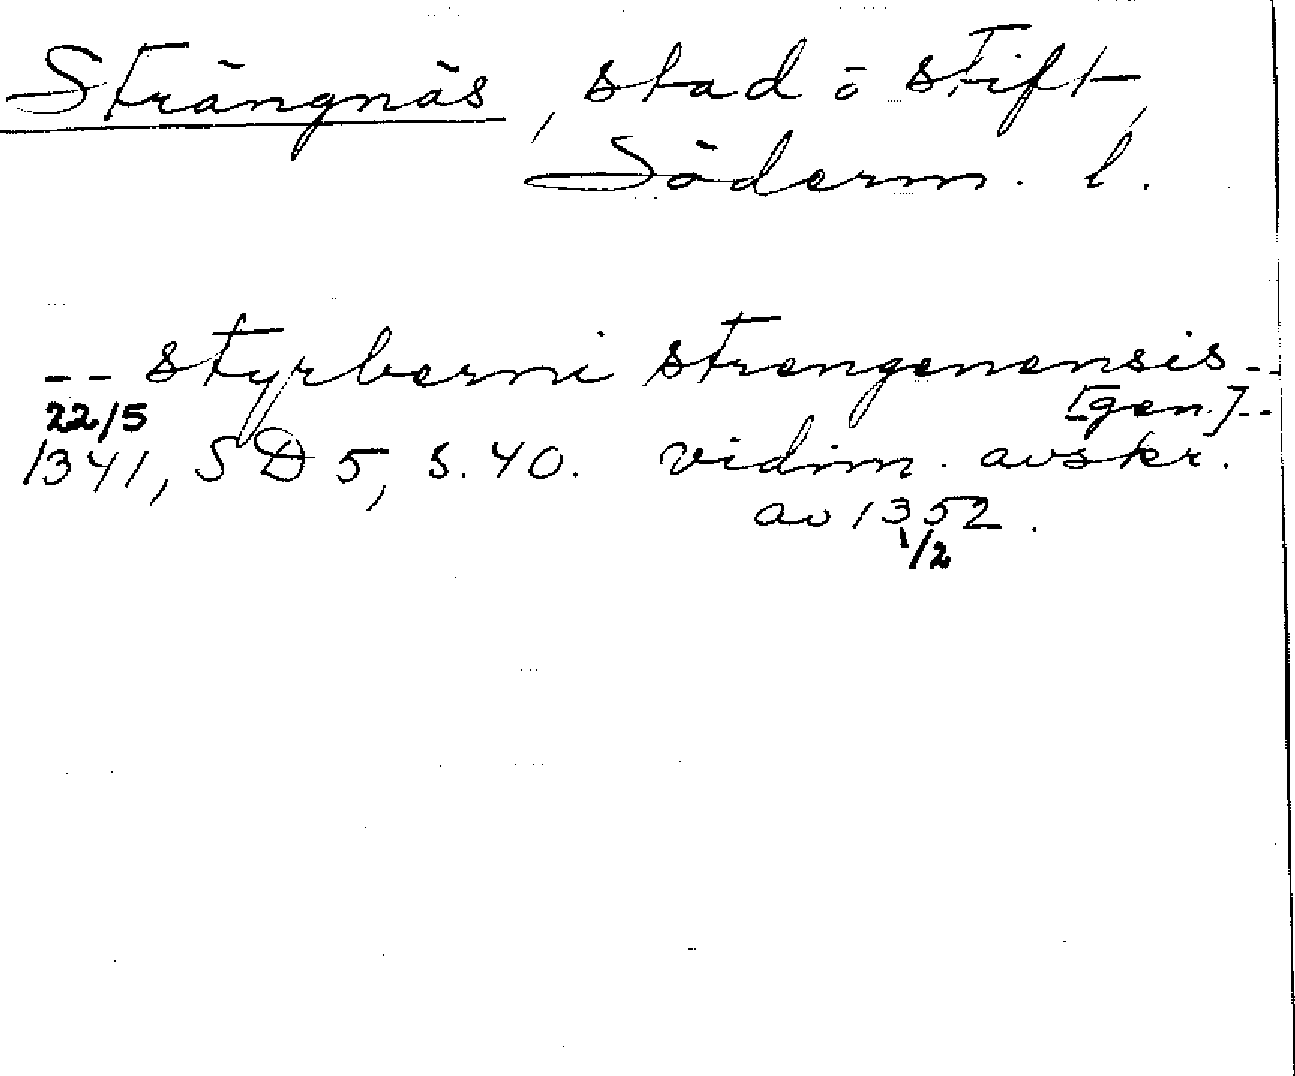 Strängnäs, stad o stift,
Söderm. l.
-- styrberni strengenensis --
[gen.] --
22/5
1341, SD 5, s. 40. vidim. avskr.
av 1352.
1/2